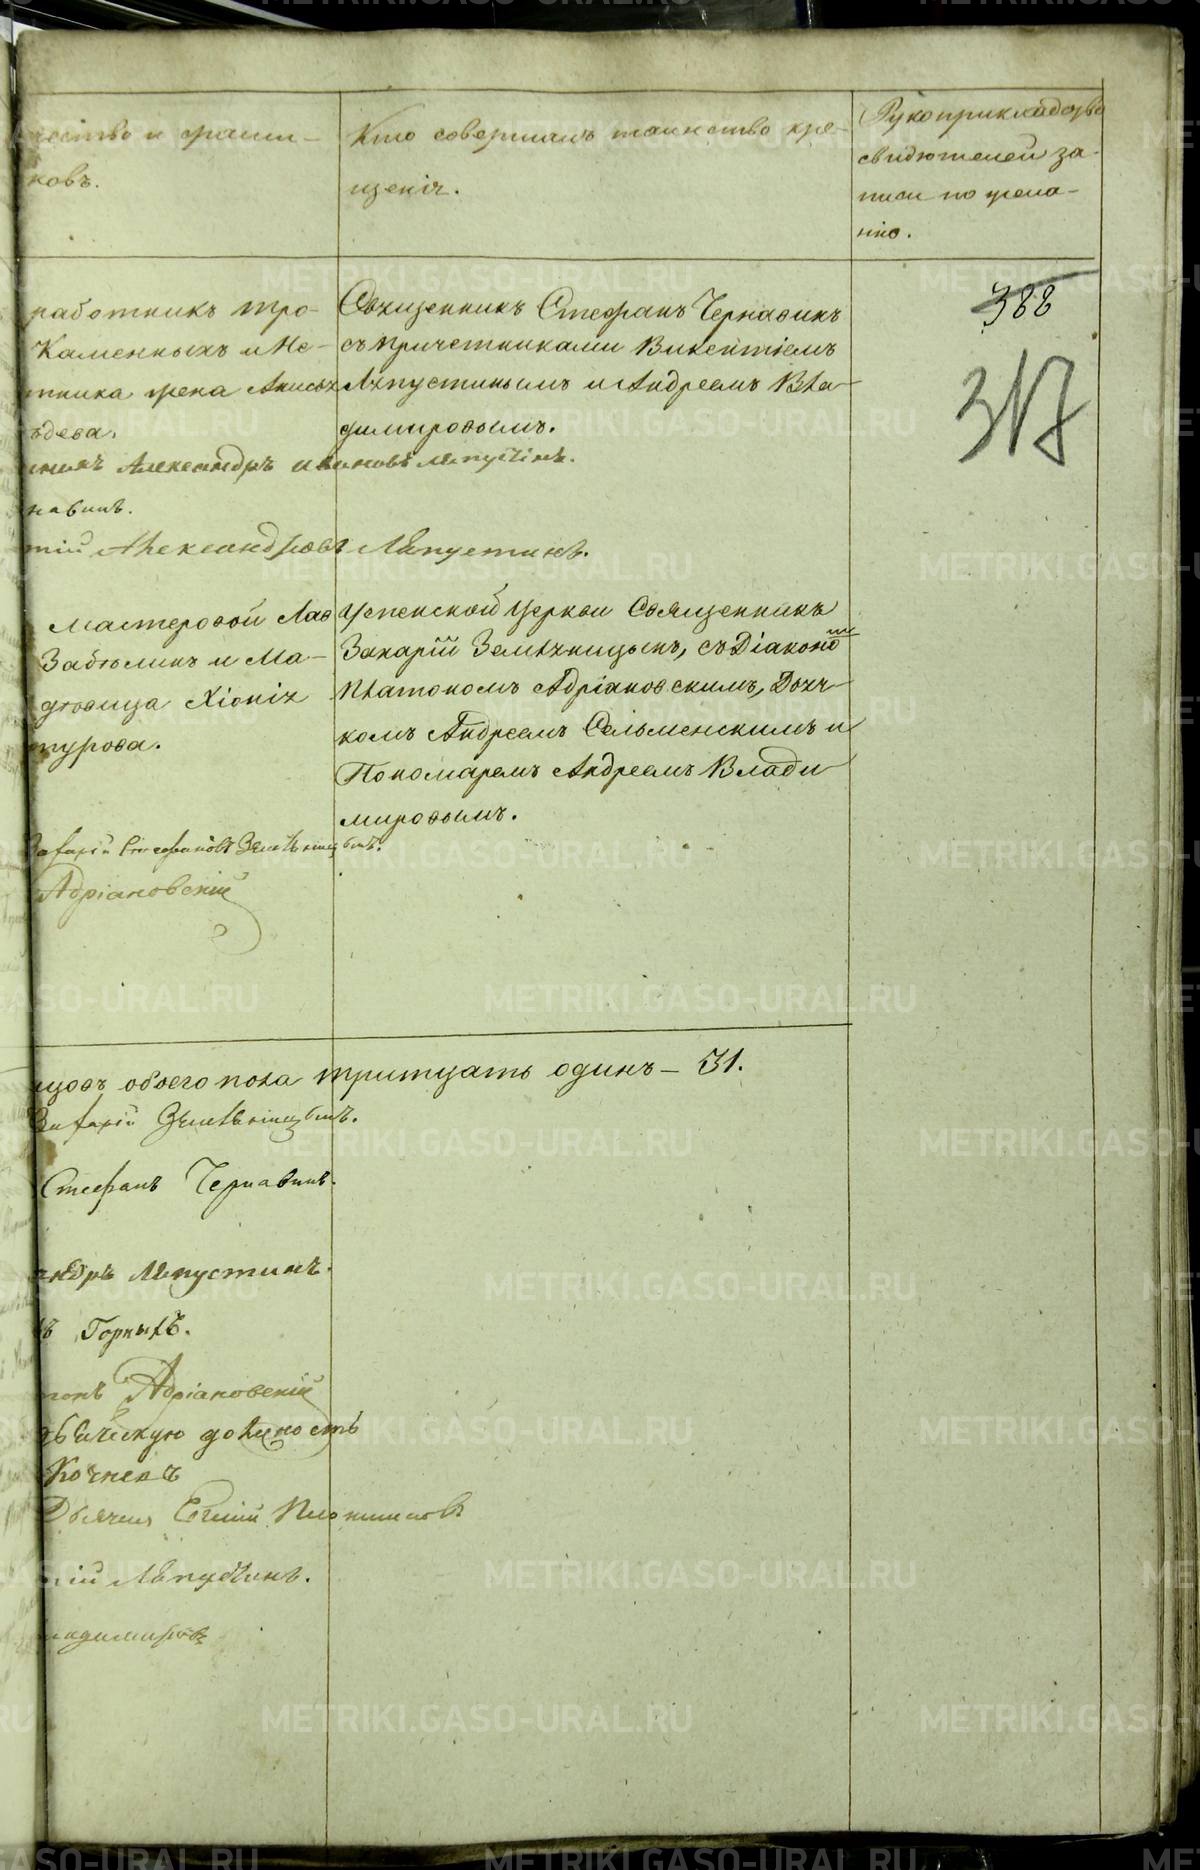 чество и фами-
ковъ.
Кто совершалъ таинство кре-
щенія.
Рукоприкладство
свидѣтелей за-
писи по жела-
нію.
388
317
работникъ Тро-
Каменныхъ и Не-
тника жена Анисья
ѣдева.
Священникъ Стефанъ Чернавинъ
съ причетниками Викентіемъ
Ляпустинымъ и Андреемъ Вла-
димировымъ.
Александръ Ивановъ Ляпустинъ.
навинъ.
тій Александровъ Ляпустинъ.
Мастеровой Лав
Забѣлинъ и Ма-
дѣвица Хіонія
турова.
Успенской Церкви Священникъ
Захарій Земляницынъ, съ Діакономъ
Платономъ Адріановскимъ, Дьяч-
комъ Андреемъ Сельменскимъ и
Пономаремъ Андреемъ Влади
мировымъ.
Захарій Стефановъ Земляницынъ.
Адріановскій
цовъ обоего пола тритцать одинъ – 31.
Захарій Земляницынъ.
Стефанъ Чернавинъ.
андръ Ляпустинъ.
ъ Горныхъ.
тонъ Адріановскій
должность
Кочневъ
Дьячекъ Евгеній Плотниковъ
тій Ляпустинъ.
ладимировъ
METRIKI.GASO-URAL.RU